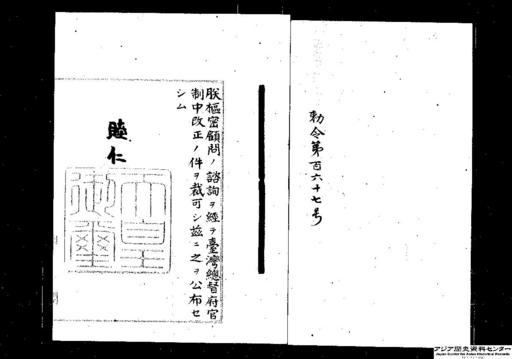 勅令第百六十七号
朕樞密顧問ノ諮詢ヲ經テ臺灣總督府官
制中改正ノ件ヲ裁可シ茲ニ之ヲ公布セ
シム
睦仁
天皇
御璽
アジア歴史資料センター
Japan Center for Asian Historical Records